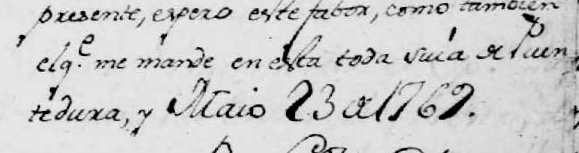 presente, espero este fabor, como tambien
el q.e me mande en esta toda suia de Puen
tedura, y Maio 23 de 1769.